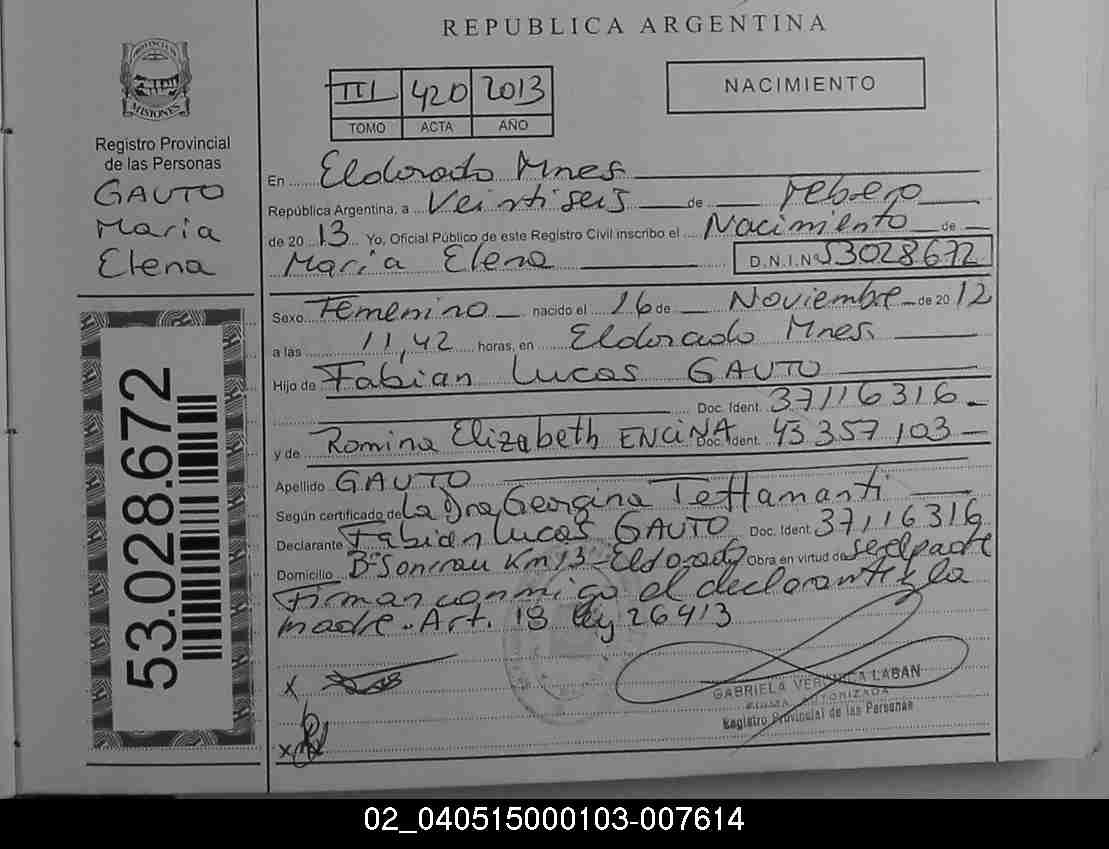 REPUBLICA ARGENTINA
PROVINCIA DE
MISIONES
Registro Provincial
de las Personas
GAUTO
Maria
Elena
53.028.672
III 420 2013
TOMO ACTA AÑO
NACIMIENTO
En Eldorado Mnes.
República Argentina, a Veintiseis de Febrero
de 20 13 Yo, Oficial Público de este Registro Civil inscribo el Nacimiento de
Maria Elena D.N.I.Nº 53028672
Sexo Femenino nacido el 16 de Noviembre de 20 12
a las 11,42 horas, en Eldorado Mnes.
Hijo de Fabian Lucas GAUTO
Doc. Ident. 37116316
y de Romina Elizabeth ENCINA Doc. Ident. 43357103
Apellido GAUTO
Según certificado de La Dra Georgina Tettamanti
Declarante Fabian Lucas GAUTO Doc. Ident 37116316
Domicilio Bº Km 13 - Eldorado Obra en virtud de ser el padre
Firman conmigo el declarante y la
madre. Art. 18 ley 26413
x
x
GABRIELA VERONICA LABAN
FIRMA AUTORIZADA
Registro Provincial de las Personas
02_040515000103-007614